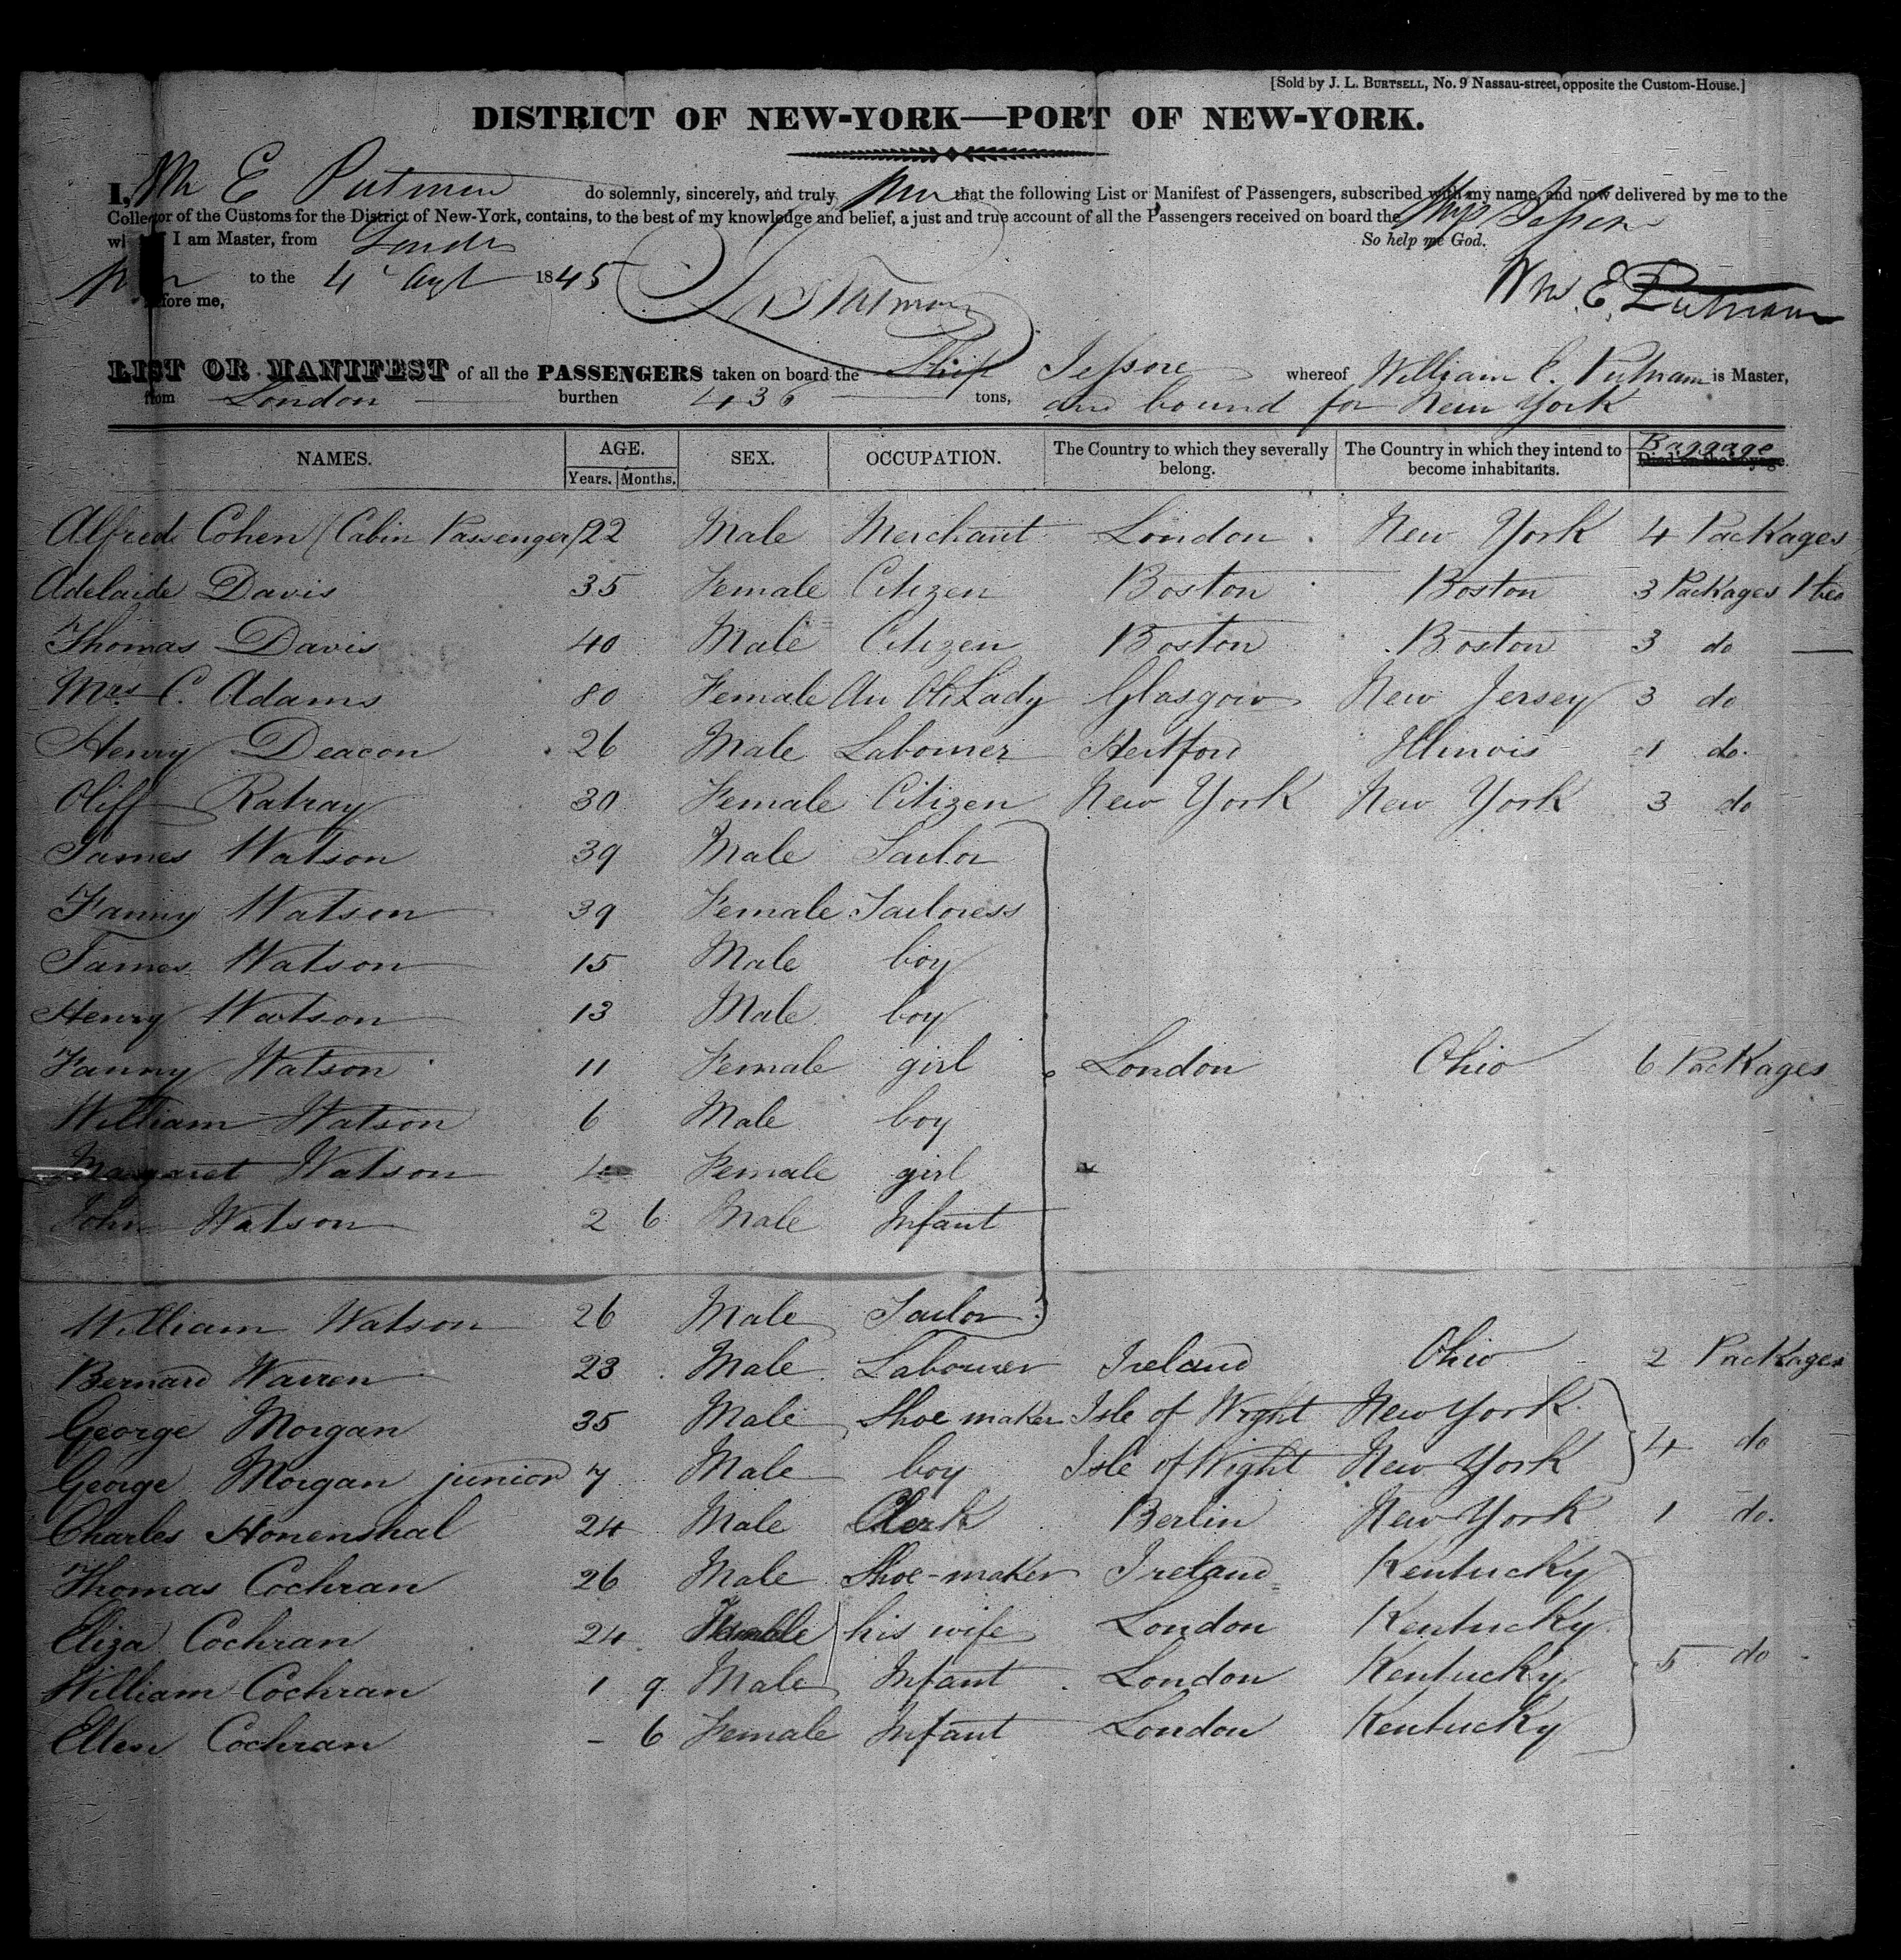 [Sold by J. L. BURTSELL, No. 9 Nassau-street, opposite the Custom-House.]
DISTRICT OF NEW-YORK—PORT OF NEW-YORK.
I, Wm E Putman do solemnly, sincerely, and truly that the following List or Manifest of Passengers, subscribed with my name, and now delivered by me to the
Collector of the Customs for the District of New-York, contains, to the best of my knowledge and belief, a just and true account of all the Passengers received on board the Ship Jessore
I am Master, from London So help me God.
to the 4 Augt 1845
before me, Wm. E. Putnam
LIST OR MANIFEST of all the PASSENGERS taken on board the Ship Jessore whereof William E. Putnam is Master,
from London burthen 436 tons, and bound for New York
NAMES. AGE. SEX. OCCUPATION. The Country to which they severally belong. The Country in which they intend to become inhabitants. Baggage Died on the voyage.
Years. Months.
Alfred Cohen (Cabin Passenger) 22 Male Merchant London New York 4 Packages
Adelaide Davis 35 Female Citizen Boston Boston 3 Packages 1
Thomas Davis 40 Male Citizen Boston Boston 3 do
Mrs C. Adams 80 Female An Old Lady Glasgow New Jersey 3 do
Henry Deacon 26 Male Labourer Hertford Illinois 1 do.
Oliff Ratray 30 Female Citizen New York New York 3 do
James Watson 39 Male Tailor
Fanny Watson 39 Female Tailoress
James Watson 15 Male boy
Henry Watson 13 Male boy
Fanny Watson 11 Female girl London Ohio 6 Packages
William Watson 6 Male boy
Margaret Watson 4 Female girl
John Watson 2 6 Male Infant
William Watson 26 Male Tailor
Bernard Warren 23 Male Labourer Ireland Ohio 2 Packages
George Morgan 35 Male Shoe maker Isle of Wight New York
George Morgan junior 7 Male boy Isle of Wight New York 4 do
Charles Honenshal 24 Male Clerk Berlin New York 1 do.
Thomas Cochran 26 Male Shoe-maker Ireland Kentucky
Eliza Cochran 24 Female his wife London Kentucky 5 do
William Cochran 1 9 Male Infant London Kentucky
Ellen Cochran - 6 Female Infant London Kentucky